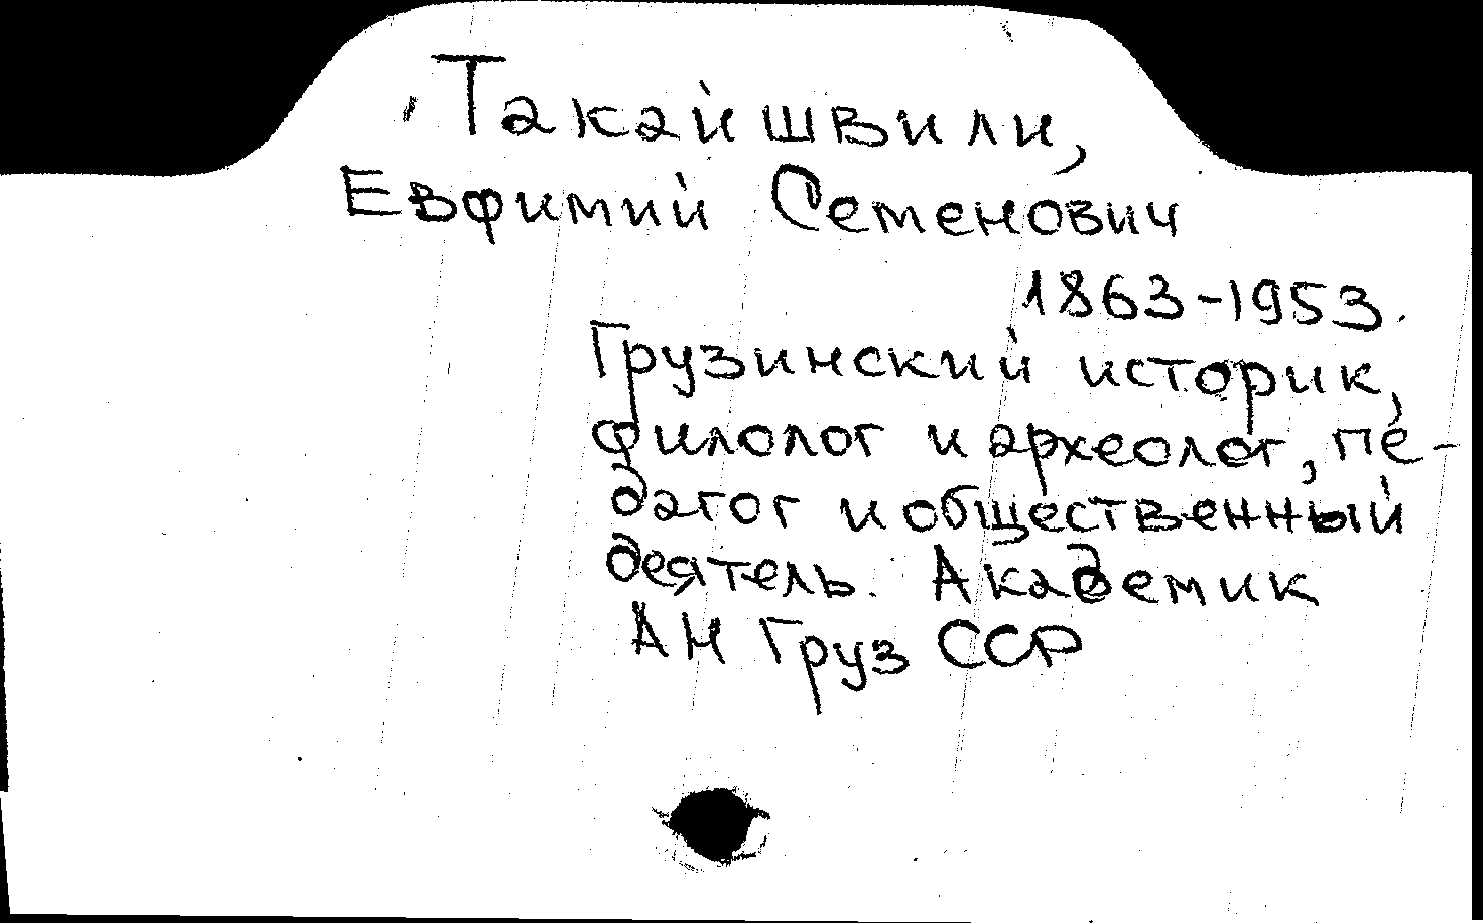 Такайшвили,
Евфимий Семенович
1863-1953.
Грузинский историк,
филолог и археолог, пе-
дагог и общественный
деятель. Академик
АН Груз ССР